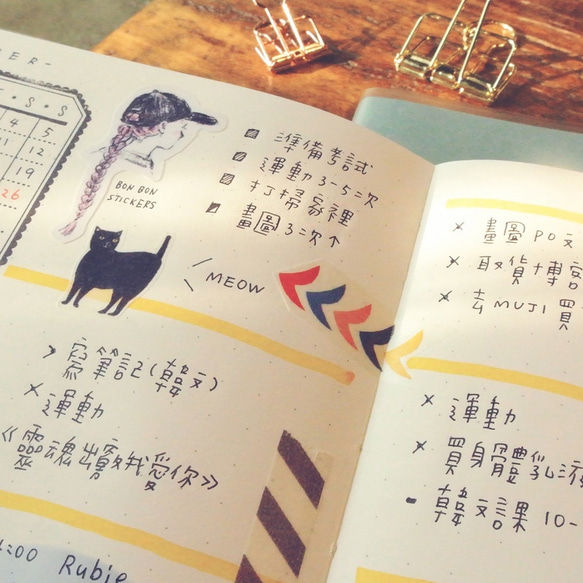 ER-
S S
4 5
11 12
19
26
BON BON
STICKERS
準備考試
運動3-5次
打掃家裡
畫圖3次↑
MEOW
> 寫筆記(韓文)
× 運動
《靈魂出竅我愛你》
:00 Rubie
× 畫圖PO文
× 取貨博客
× 去MUJI買
× 運動
× 買身體乳液
- 韓文課 10-